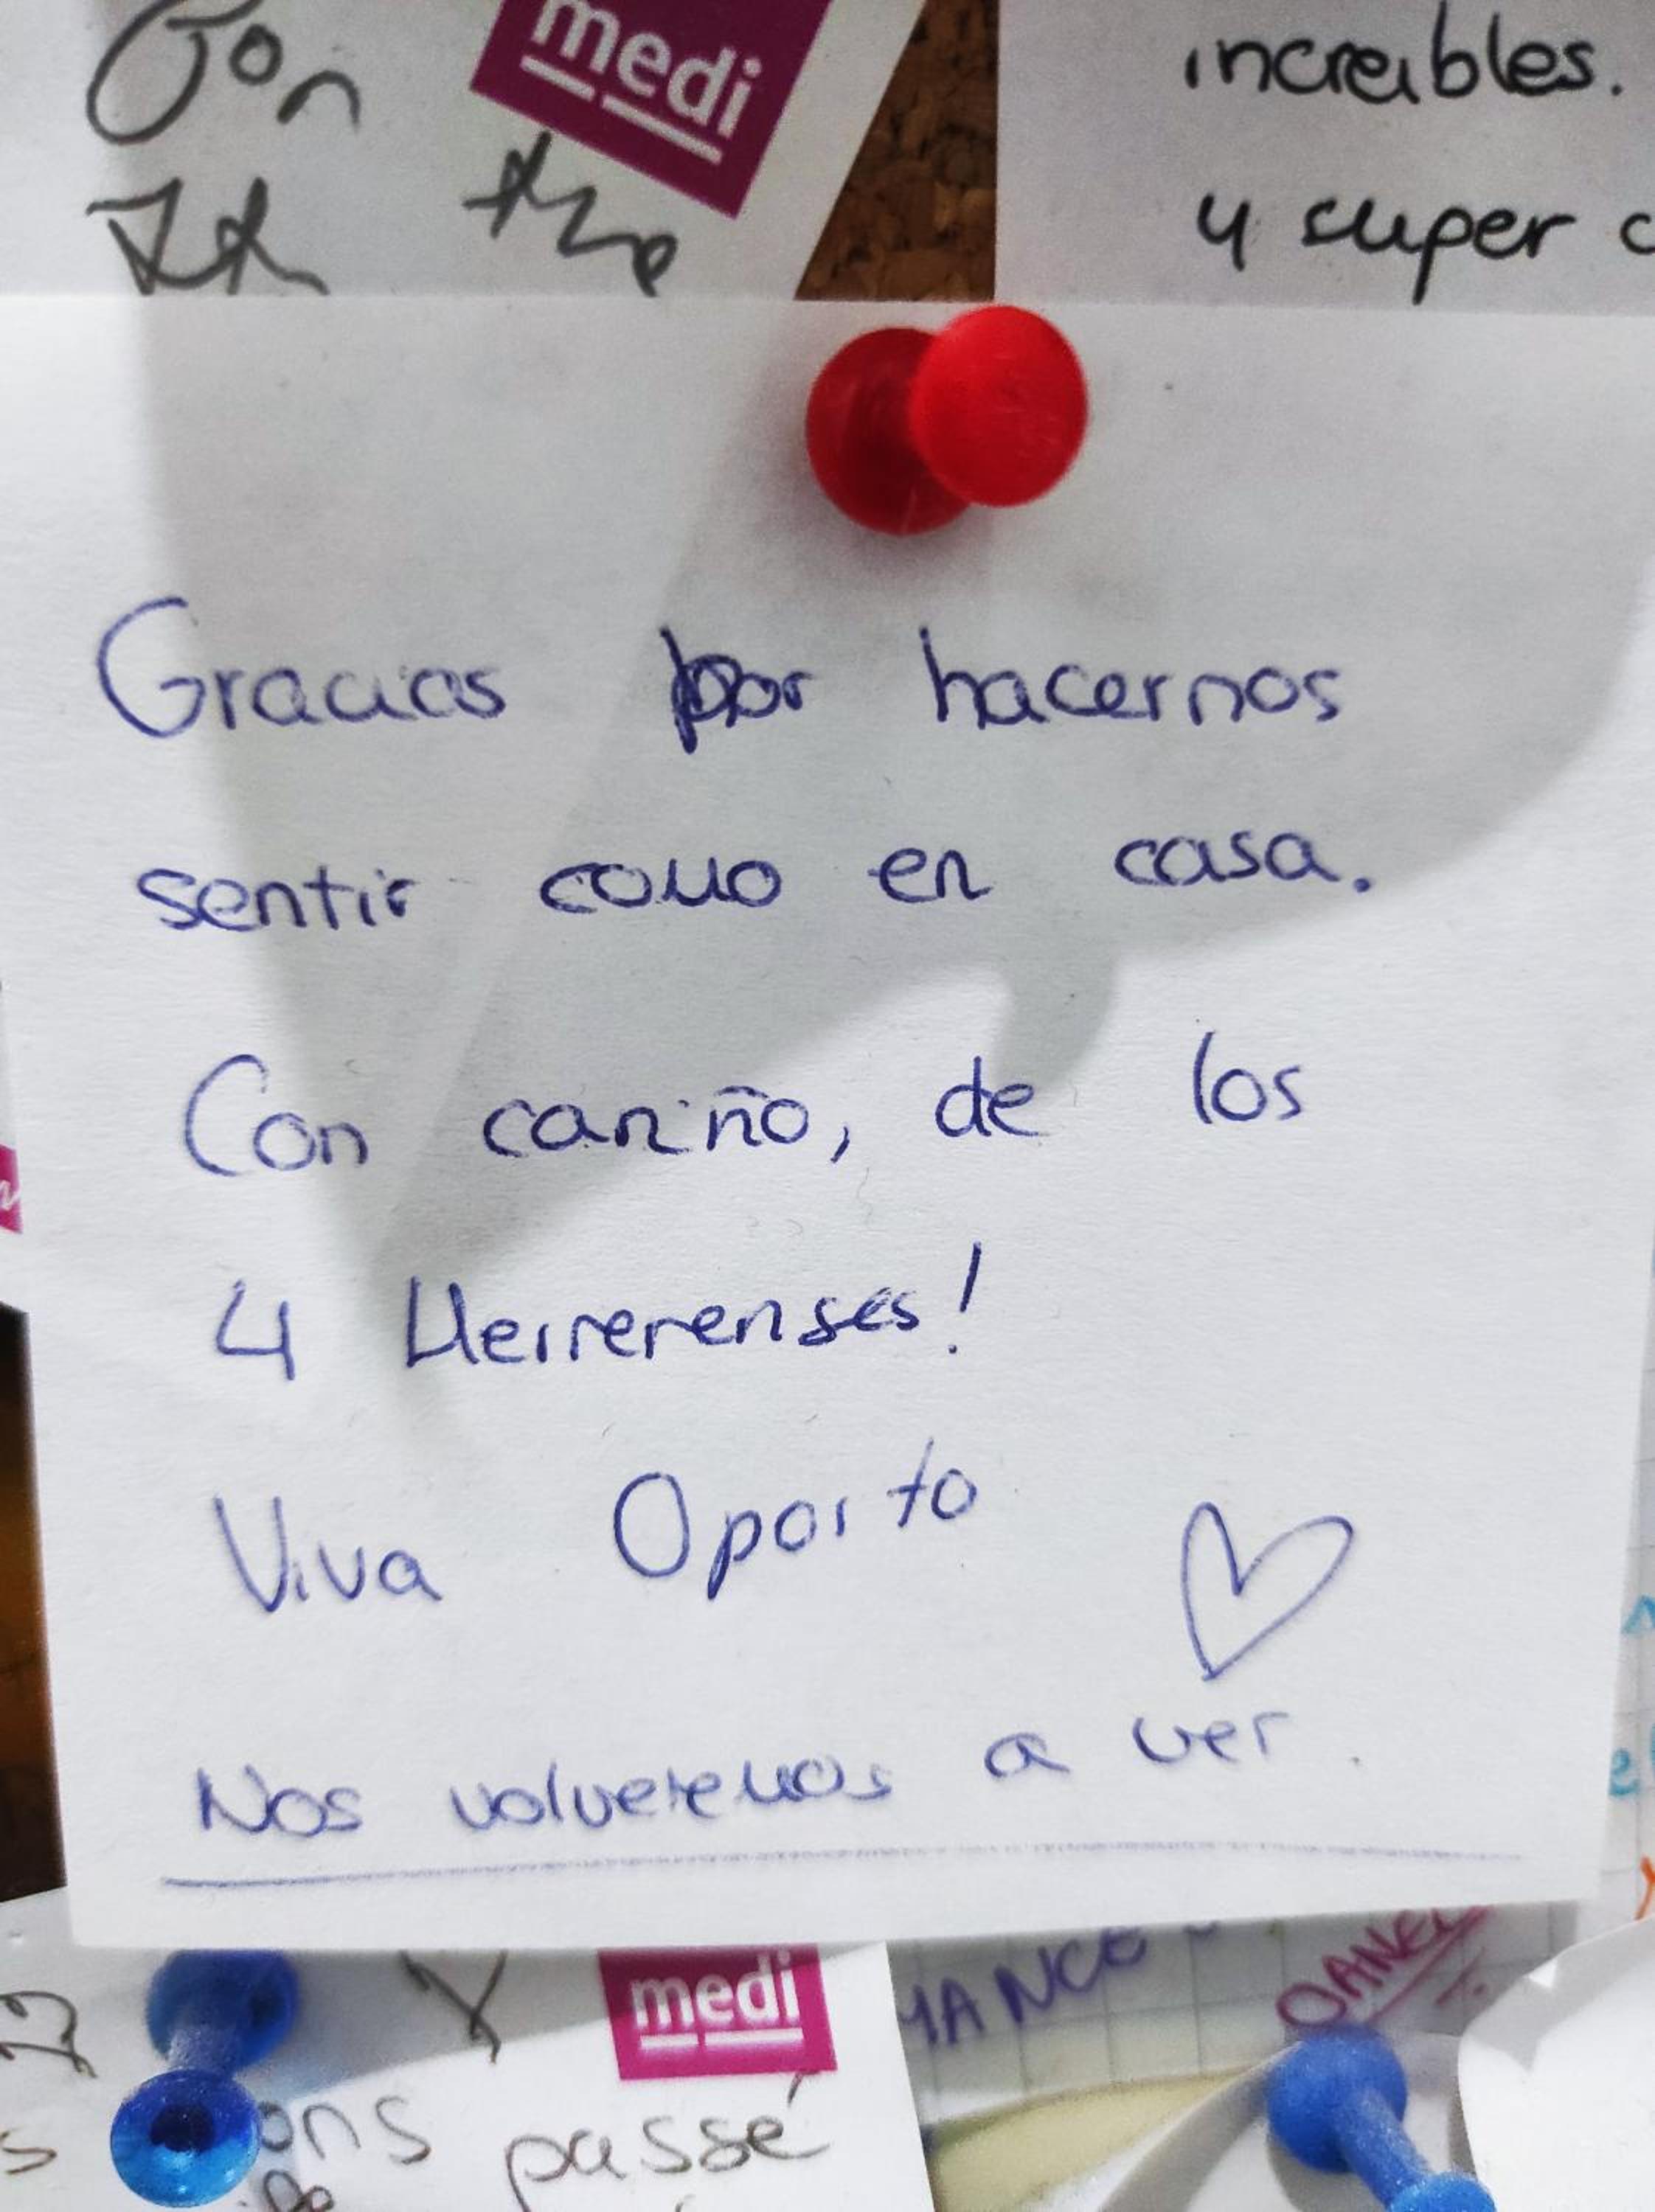 medi
increibles.
y super
Gracias por hacernos
sentir como en casa.
Con cariño, de los
4 Herrerenses!
Viva Oporto
Nos volveremos a ver.
medi
DANIEL
ons passé